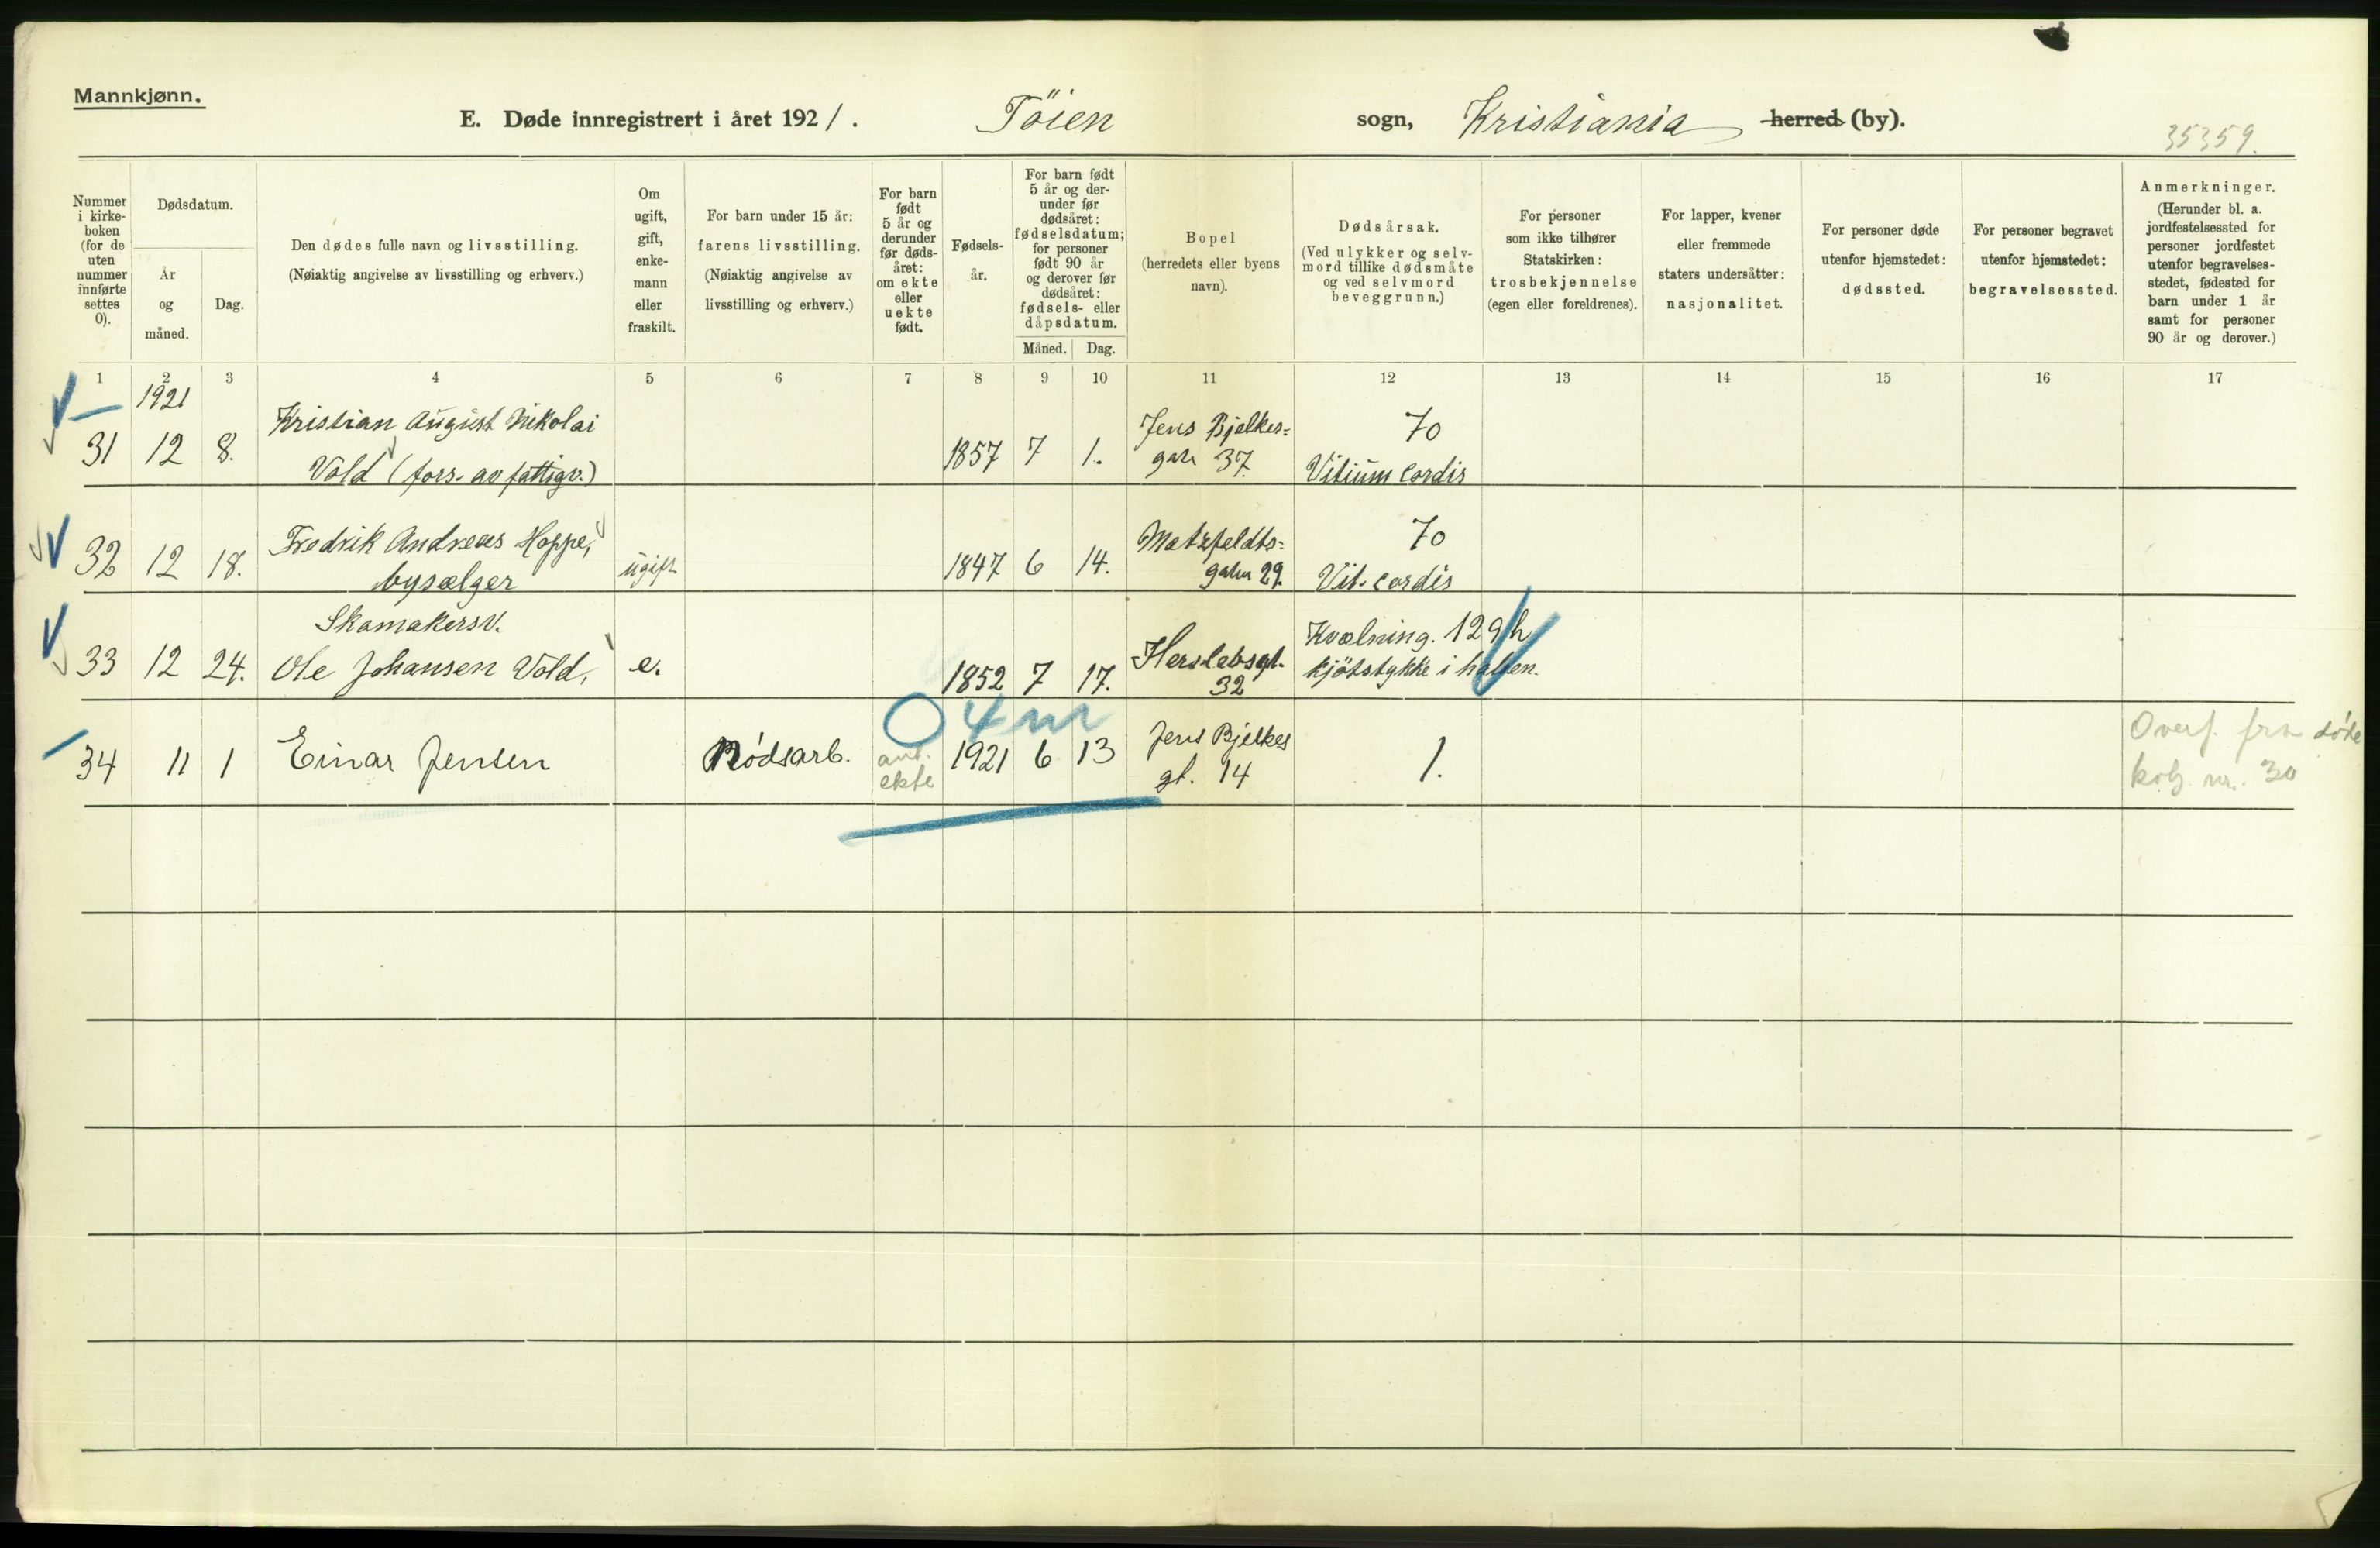 Mannkjønn.
E. Døde innregistrert i året 1921. Töien sogn, Kristiania herred (by).
35359.
Nummer i kirkeboken (for de uten nummer innførte settes 0).
Dødsdatum.
År og måned.
Dag.
Den dødes fulle navn og livsstilling.
(Nøiaktig angivelse av livsstilling og erhverv.)
Om ugift, gift, enkemann eller fraskilt.
For barn under 15 år:
farens livsstilling.
(Nøiaktig angivelse av livsstilling og erhverv.)
For barn født 5 år og derunder før dødsåret: om ekte eller uekte født.
Fødselsår.
For barn født 5 år og derunder før dødsåret: fødselsdatum; for personer født 90 år og derover før dødsåret: fødsels- eller dåpsdatum.
Måned. Dag.
Bopel
(herredets eller byens navn).
Dødsårsak.
(Ved ulykker og selvmord tillike dødsmåte og ved selvmord beveggrunn.)
For personer som ikke tilhører Statskirken:
trosbekjennelse
(egen eller foreldrenes).
For lapper, kvener eller fremmede staters undersåtter:
nasjonalitet.
For personer døde utenfor hjemstedet:
dødssted.
For personer begravet utenfor hjemstedet:
begravelsessted.
Anmerkninger.
(Herunder bl. a. jordfestelsessted for personer jordfestet utenfor begravelsesstedet, fødested for barn under 1 år samt for personer 90 år og derover.)
1 2 3 4 5 6 7 8 9 10 11 12 13 14 15 16 17
1921
31 12 8. Kristian August Nikolai
Vold (fors. av fattigv.) 1857 7 1. Jens Bjelkes=
gate 37. 70
Vitium cordis
32 12 18. Fredrik Andreas Hoppe,
bysælger ugift 1847 6 14. Motzfeldts=
gaten 29. 70
Vit. cordis
Skomakersv.
33 12 24. Ole Johansen Vold, e. 1852 7 17. Herslebsgt.
32 Kvælning. 129 h
kjötstykke i halsen.
0 4 m
34 11 1 Einar Jensen Bödsarb. ekte 1921 6 13 Jens Bjelkes
gt. 14 1. Overf. fra døde
nr. 30